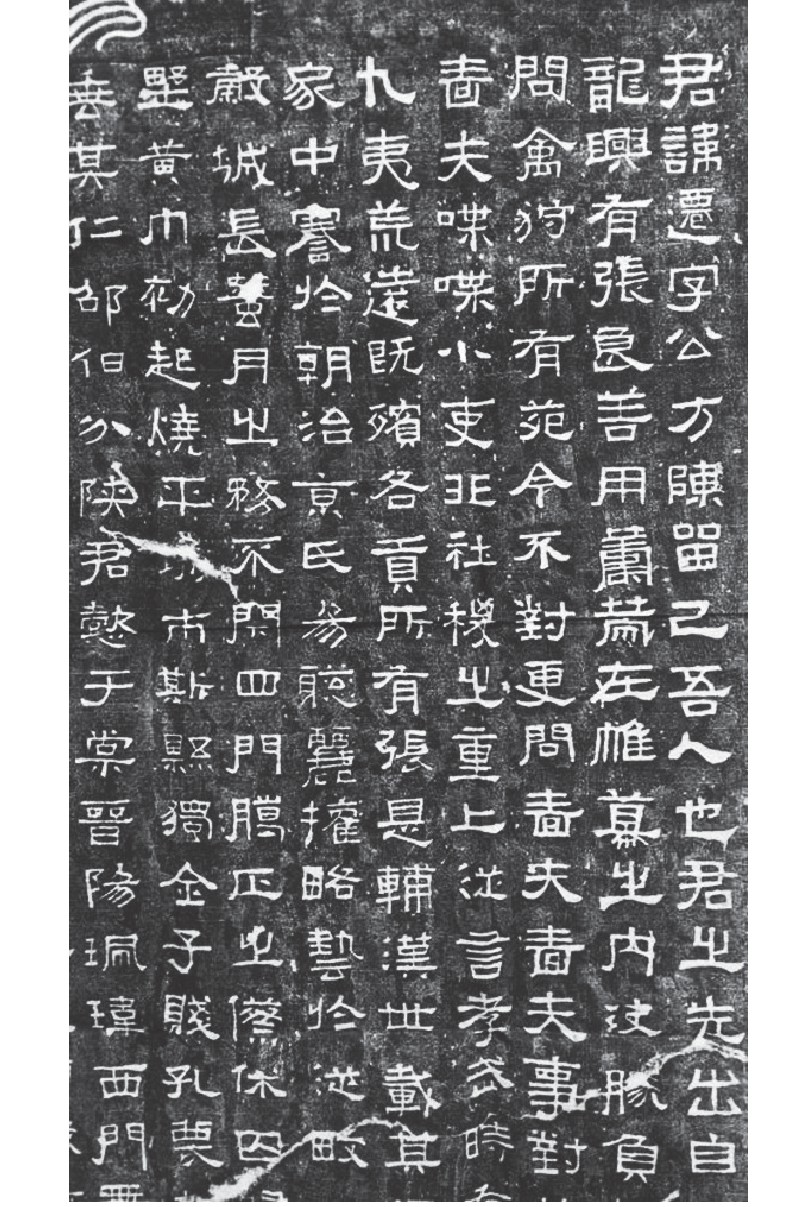 君諱遷字公方陳留己吾人也君之先出自
龍興有張良善用籌策在帷幕之內決勝負
問禽狩所有苑令不對更問嗇夫嗇夫事對
嗇夫喋喋小吏非社稷之重上從言孝武時
九夷荒遠既殯各貢所有張是輔漢世載其
家中謇於朝治京氏易聰麗權略藝於從畋
穀城長蠶月之務不閉四門臘正之僚休囚
堅黃巾初起燒平市斯縣獨全子賤孔蔑
垂其仁邵伯分陝君懿于棠晉陽珮瑋西門